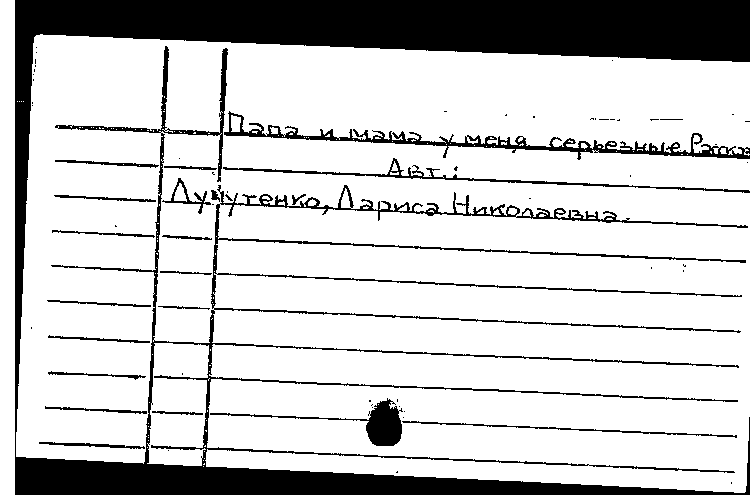 Папа и мама у меня серьезные. Рассказ
Авт.:
Лупутенко, Лариса Николаевна.